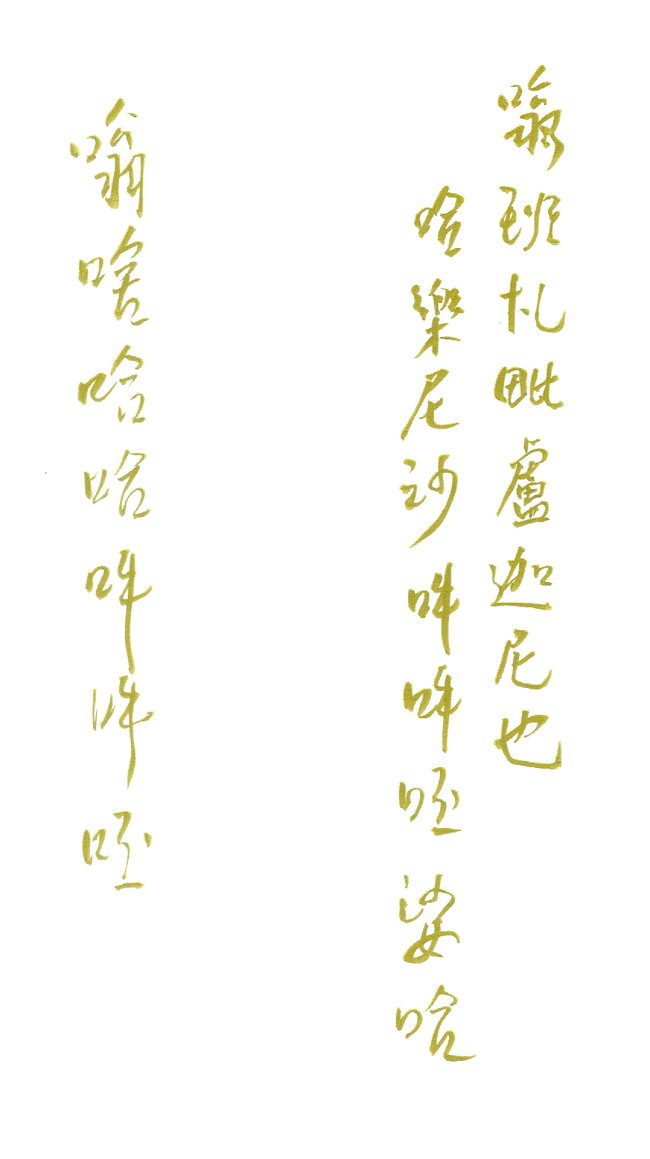 嗡班札毗盧迦尼也
哈樂尼沙吽吽呸娑哈
嗡啥哈哈吽吽呸